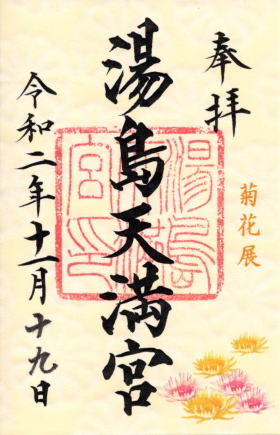 奉拝
菊花展
湯島天満宮
湯島天満宮印
令和二年十一月十九日